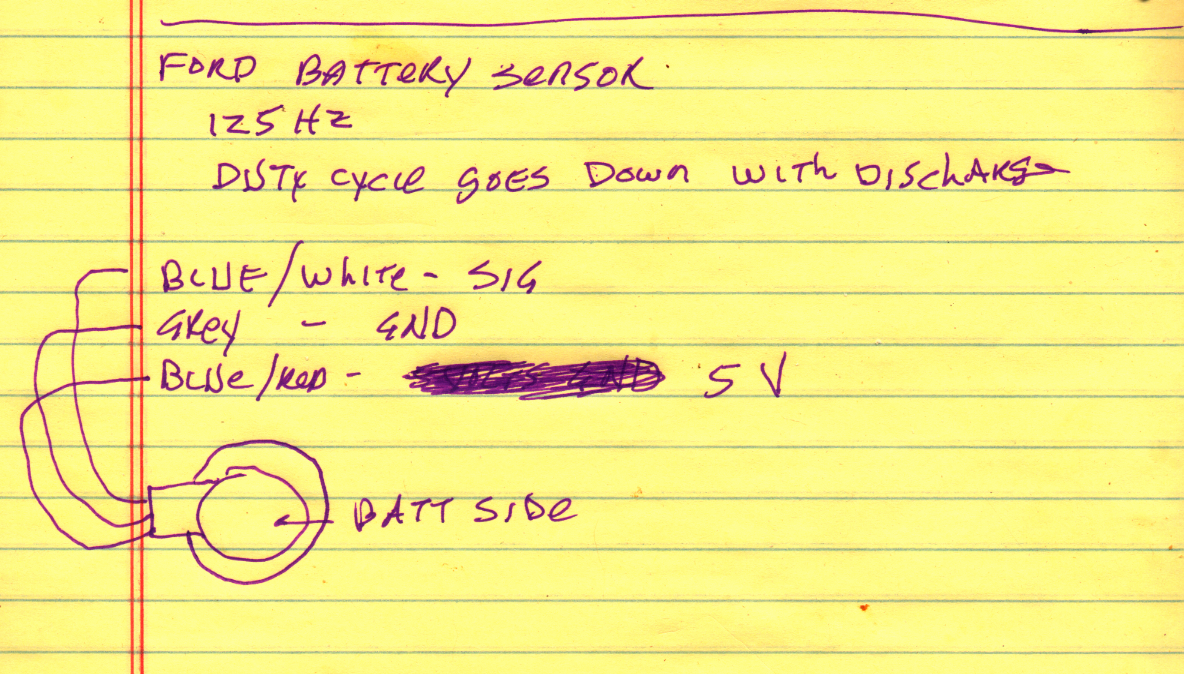 FORD BATTERY SENSOR
125 HZ
DUTY CYCLE GOES DOWN WITH DISCHARGE
BLUE/WHITE - SIG
GREY - GND
BLUE/RED - 5 V
BATT SIDE